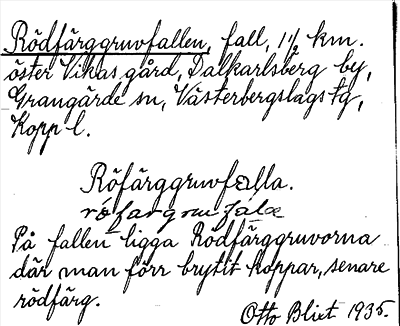 Rödfärggruvfallen, fall, 1 1/2 km.
öster Vikas gård, Dalkarlsberg by,
Grangärde sn, Västerbergslags tg,
Kopp l.
Röfärggruvfalla.
På fallen ligga Rödfärggruvorna
där man förr brytit koppar, senare
rödfärg.
Otto Blixt 1935.